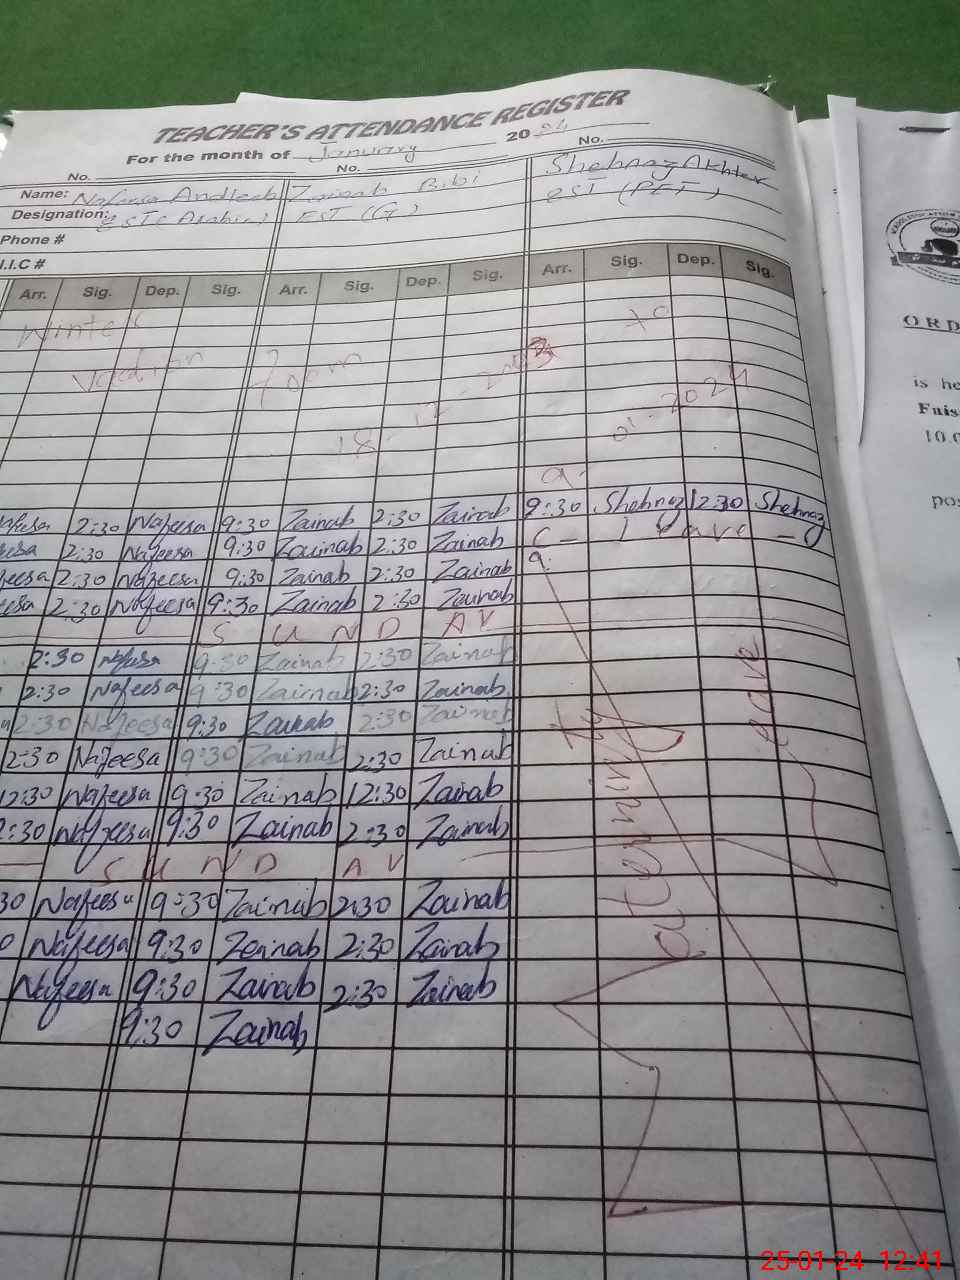 TEACHER'S ATTENDANCE REGISTER
For the month of January 2024
No. No. No.
Name: Nafeesa Andleeb Zainab Bibi Shehnaz Akhter
Designation: EST (Arabic) EST (G) EST (PET)
Phone #
I.I.C #
Arr. Sig. Dep. Sig. Arr. Sig. Dep. Sig. Arr. Sig. Dep. Sig.
Winter
Vacation from 18-12-2023 to
9-01-2024
Nafeesa 2:30 Nafeesa 9:30 Zainab 2:30 Zainab 9:30 Shehnaz 12:30 Shehnaz
eesa 2:30 Nafeesa 9:30 Zainab 2:30 Zainab C - Leave -
feesa 2:30 Nafeesa 9:30 Zainab 2:30 Zainab 9:
eesa 2:30 Nafeesa 9:30 Zainab 2:30 Zainab
S U N D A Y
2:30 Nafeesa 9:30 Zainab 2:30 Zainab
2:30 Nafeesa 9:30 Zainab 2:30 Zainab
a 2:30 Nafeesa 9:30 Zainab 2:30 Zainab
2:30 Nafeesa 9:30 Zainab 2:30 Zainab
12:30 Nafeesa 9:30 Zainab 12:30 Zainab
2:30 Nafeesa 9:30 Zainab 2:30 Zainab
S U N D A Y
30 Nafeesa 9:30 Zainab 2:30 Zainab
0 Nafeesa 9:30 Zainab 2:30 Zainab
Nafeesa 9:30 Zainab 2:30 Zainab
9:30 Zainab
Maternity
Leave
ORD
is he
Fais
10.0
pos
25-01-24 12:41